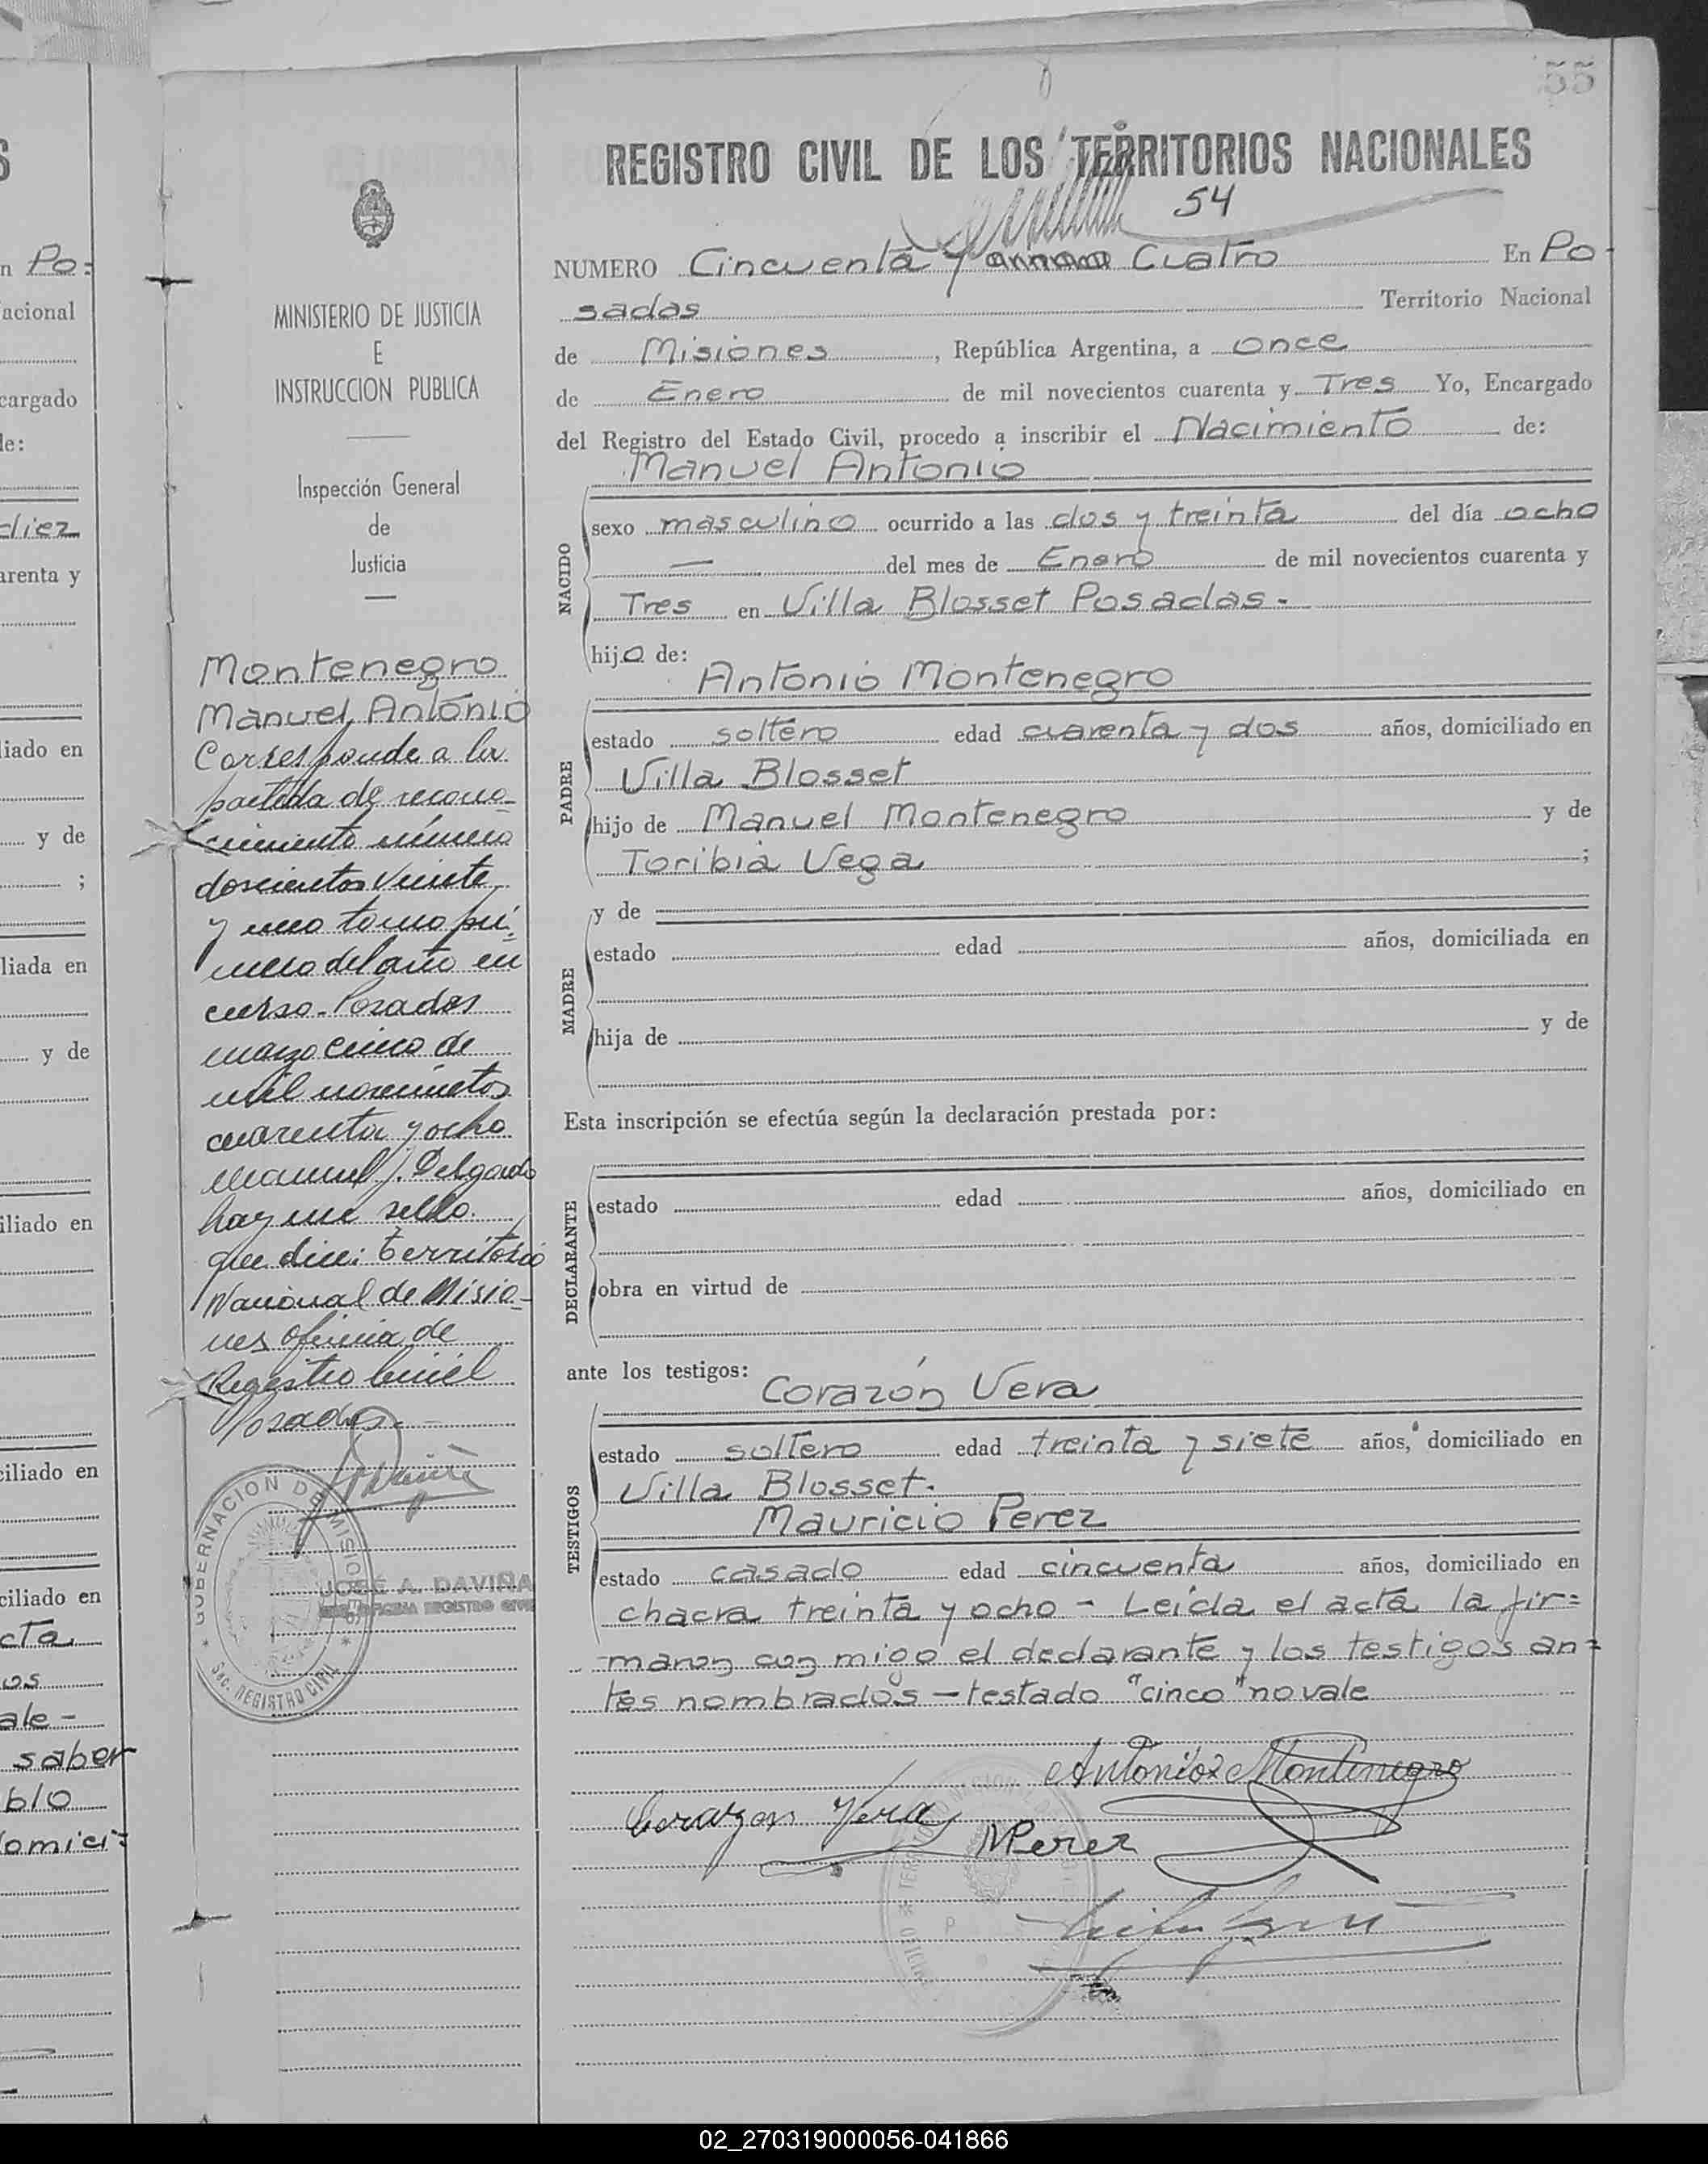 55
REGISTRO CIVIL DE LOS TERRITORIOS NACIONALES
54
NUMERO Cincuenta y cinco Cuatro En Po-
sadas Territorio Nacional
de Misiones, República Argentina, a once
de Enero de mil novecientos cuarenta y Tres Yo, Encargado
del Registro del Estado Civil, procedo a inscribir el Nacimiento de:
Manuel Antonio
NACIDO
sexo masculino ocurrido a las dos y treinta del día ocho
— del mes de Enero de mil novecientos cuarenta y
Tres en Villa Blosset Posadas.-
hijo de:
Antonio Montenegro
PADRE
estado soltero edad cuarenta y dos años, domiciliado en
Villa Blosset
hijo de Manuel Montenegro y de
Toribia Vega ;
MADRE
y de
estado edad años, domiciliada en
hija de y de
Esta inscripción se efectúa según la declaración prestada por:
DECLARANTE
estado edad años, domiciliado en
obra en virtud de
ante los testigos:
Corazón Vera
TESTIGOS
estado soltero edad treinta y siete años, domiciliado en
Villa Blosset.
Mauricio Perez
estado casado edad cincuenta años, domiciliado en
chacra treinta y ocho - Leída el acta la fir=
maron con migo el declarante y los testigos an=
tes nombrados - testado "cinco" no vale
Antonio Montenegro
Corazon Vera
MPerez
MINISTERIO DE JUSTICIA
E
INSTRUCCION PUBLICA
Inspección General
de
Justicia
Montenegro
Manuel Antonio
Corresponde a la
partida de recono-
cimiento número
doscientos veinte
y uno tomo pri-
mero del año en
curso - Posadas
marzo cinco de
mil novecientos
cuarenta y ocho
Manuel J. Delgado
hay un sello
que dice: territorio
Nacional de Misio-
nes oficina de
Registro Civil
Posadas.-
GOBERNACION DE MISIONES
Sec. REGISTRO CIVIL
JOSÉ A. DAVIÑA
OFICINA REGISTRO CIVIL
n Po=
acional
cargado
de:
diez
arenta y
liado en
y de
;
liada en
y de
iliado en
ciliado en
ciliado en
cta
os
ale -
saber
blo
domici=
02_270319000056-041866